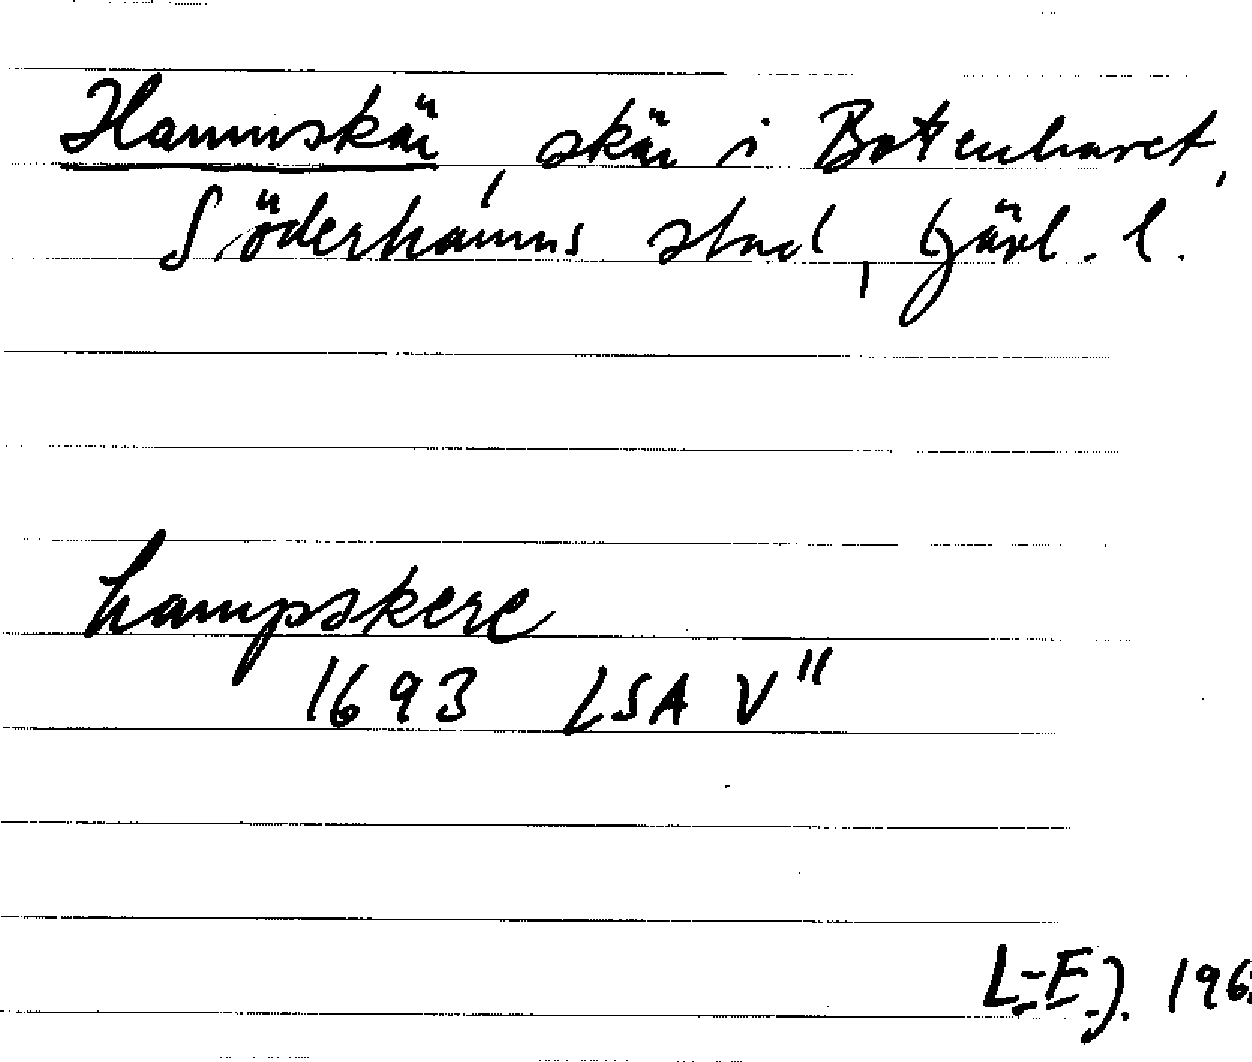 Hamnskär, skär i Bottenhavet,
Söderhamns stad, Gävl. l.
hampskere
1693 LSA V"
L-E J. 196